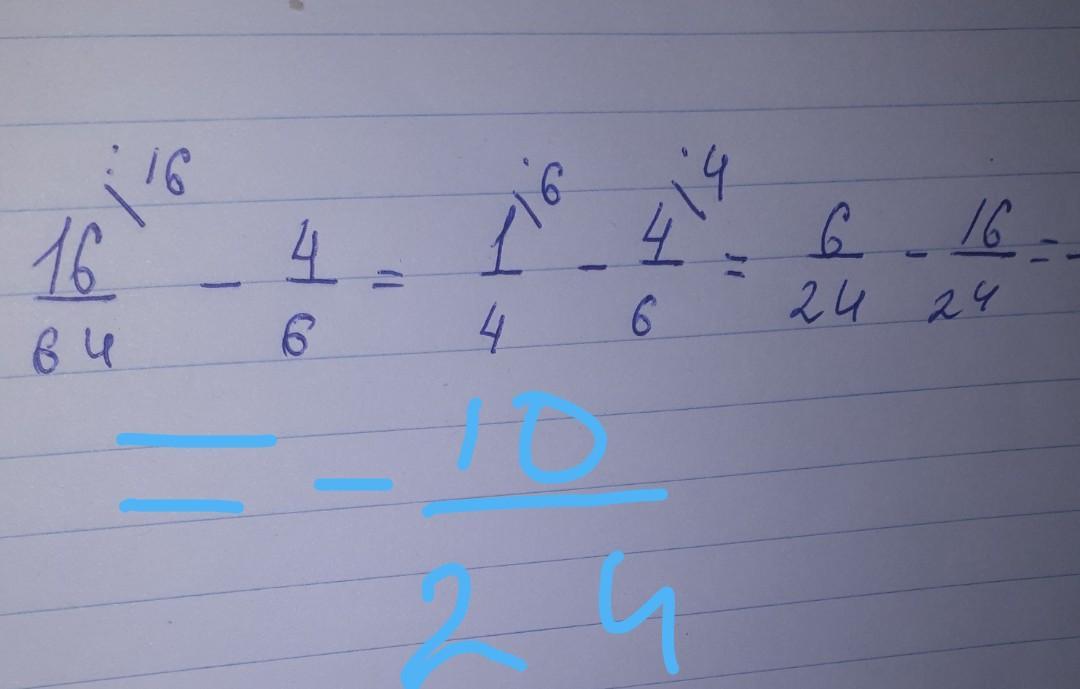 16/64 \:16 - 4/6 = 1/4 \·6 - 4/6 \·4 = 6/24 - 16/24 = -
= - 10/24